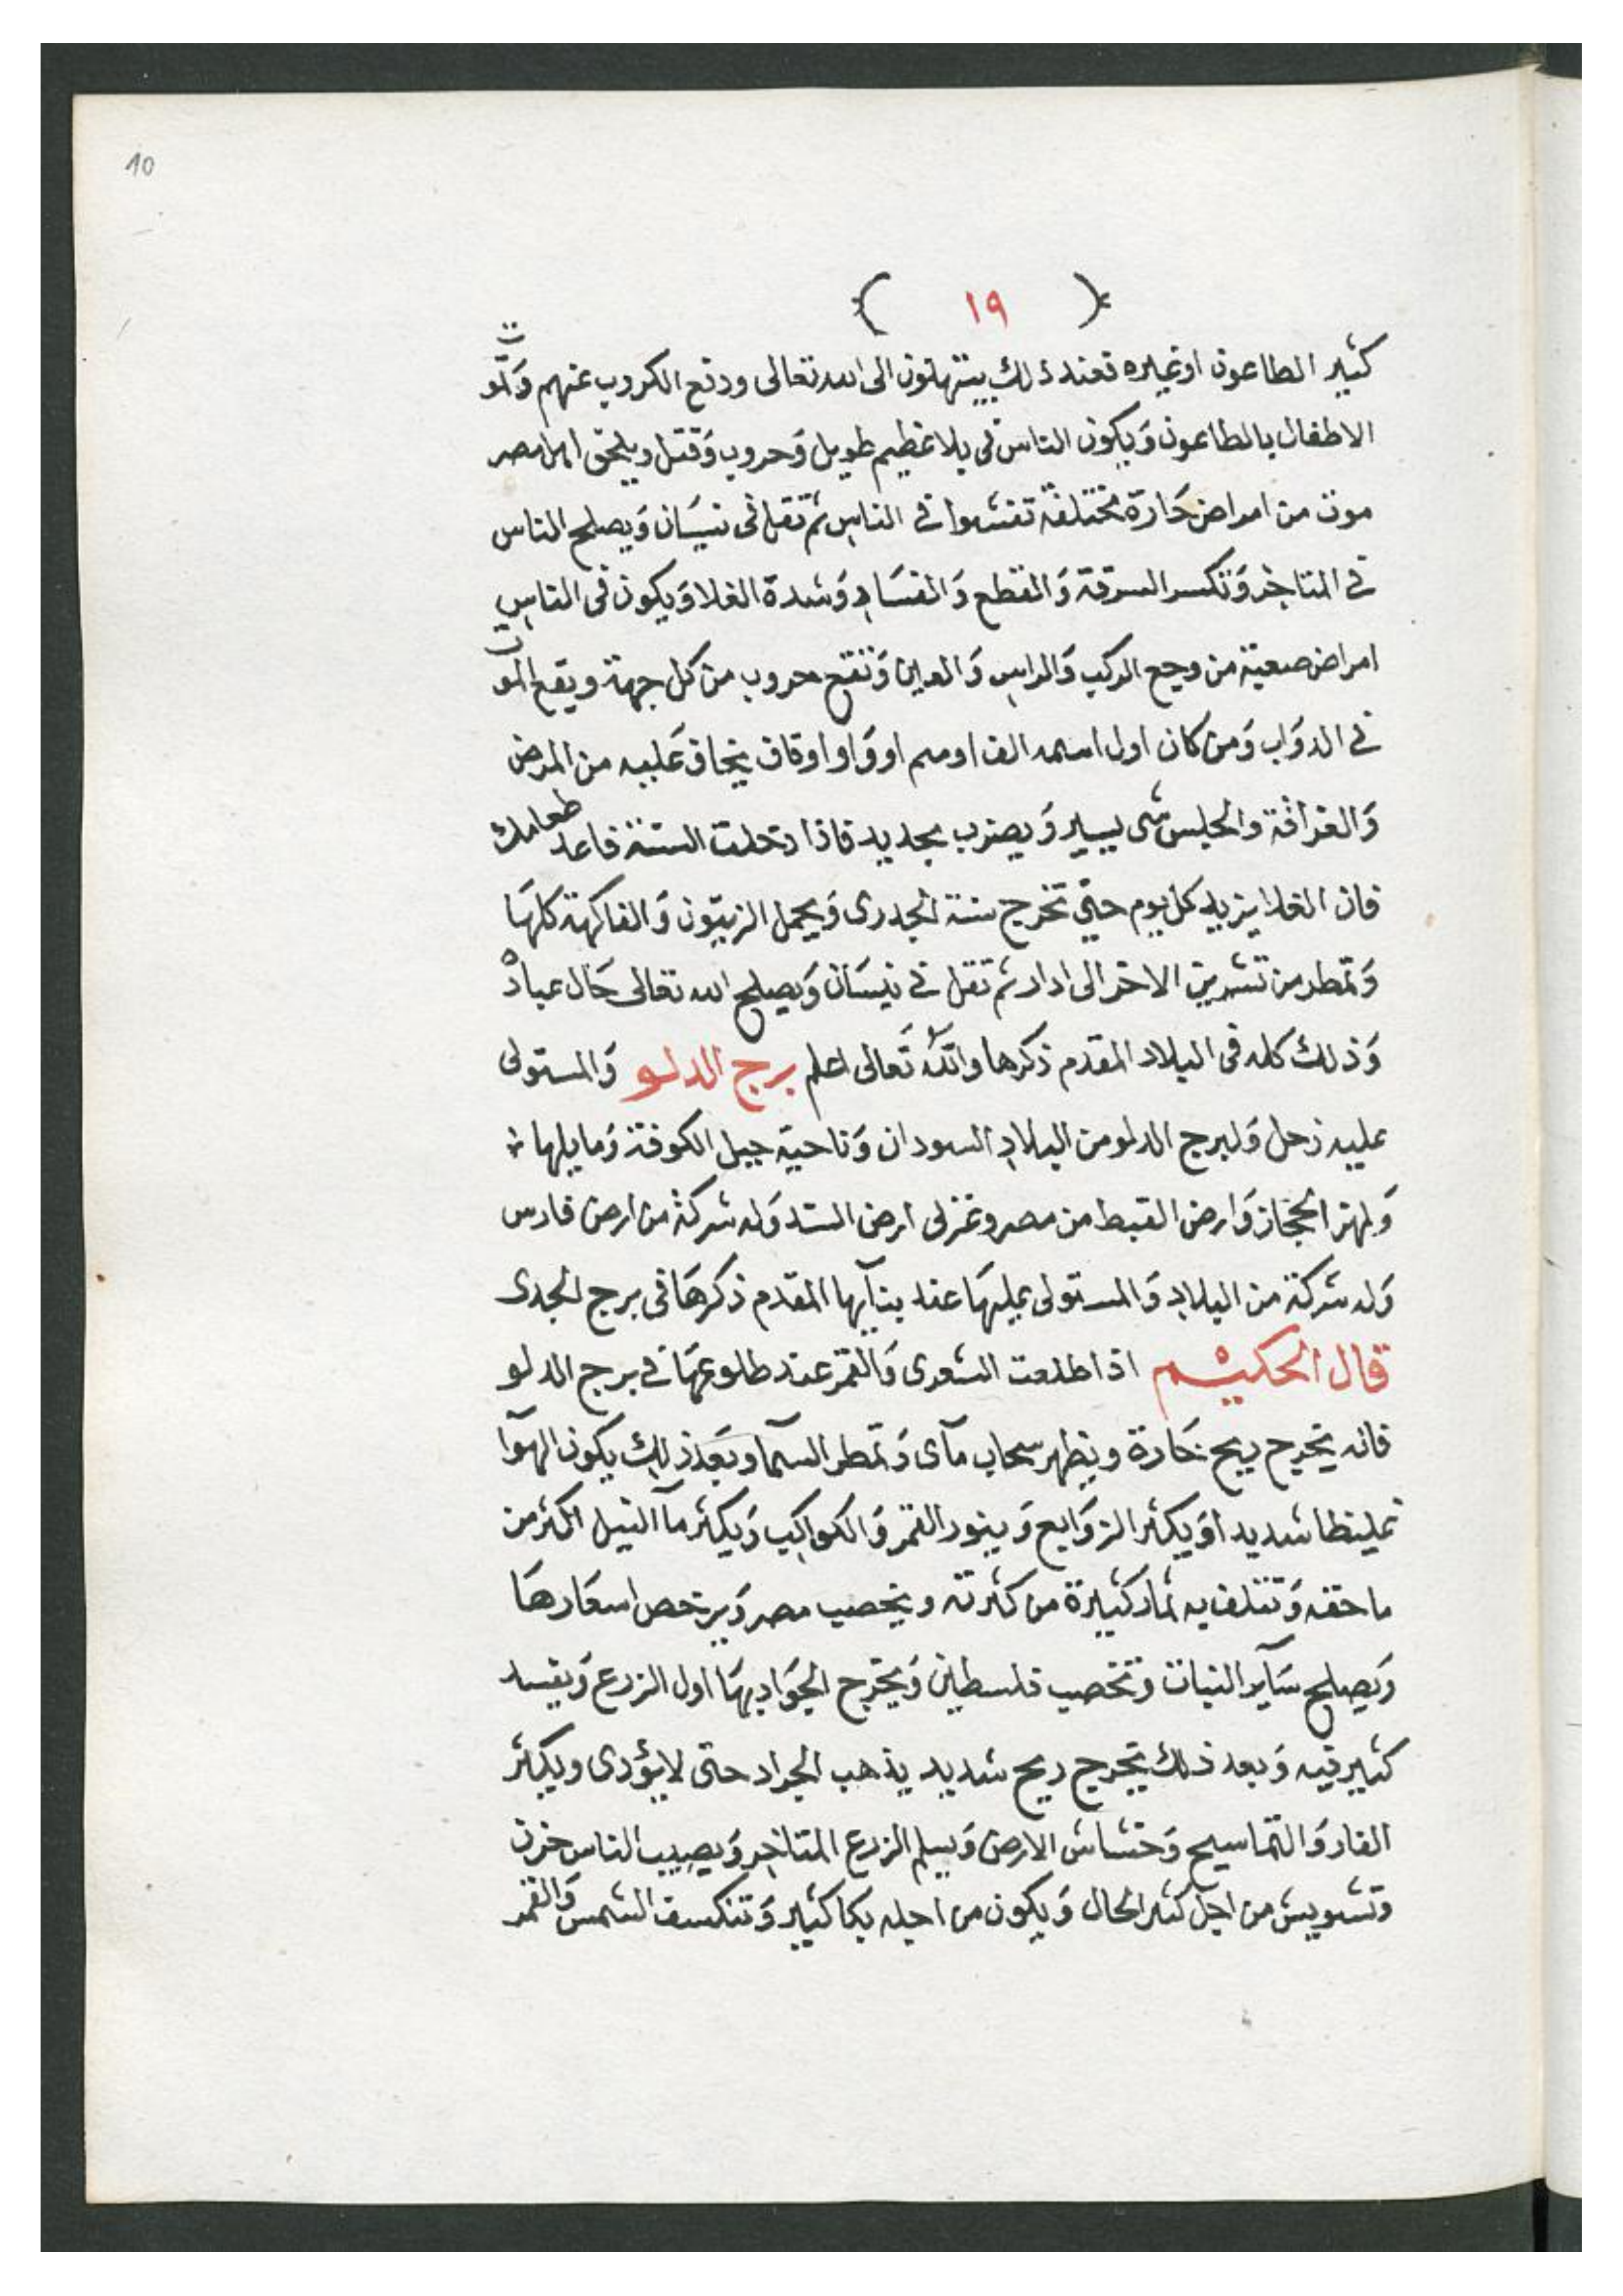 10
( ١٩ )
كثير الطاعون او غيره فعند ذلك يبتهلون الى الله تعالى ودفع الكروب عنهم وَتموت
الاطفال بالطاعون وَيكون الناس فى بلا عظيم طويل وَحروب وَقتل ويلحق اهل مصر
موت من امراض حَارة مختلفة تفشوا فى الناس ثم تقل فى نيسَان وَيصلح الناس
فى المتاجر وَتكسر السرقة وَالقطع وَالفسَاد وَشدة الغلا وَيكون فى الناس
امراض صعبة من وجع الركب وَالراس وَالعين وَتفتح حروب من كل جهة ويقع الموت
فى الدوَاب وَمن كان اول اسمه الف او ميم او وَاو او قاف يخاف عَليه من المرض
وَالغرافة والجلس شى يسير وَيضرب بحديد فاذا دخلت السنة فاعد طعامك
فان الغلا يزيد كل يوم حتى تخرج سنة الجدرى وَيحمل الزيتون وَالفاكهة كلهَا
وَتمطر من تشرين الاخر الى ادار ثم تقل فى نيسَان وَيصلح الله تعالى حَال عباده
وَذلك كله فى البلاد المقدم ذكرها والله تَعالى اعلم برج الدلو وَالمستولى
عليه زحل وَلبرج الدلو من البلاد السودان وَناحية جبل الكوفة وَما يلها
وَلهز الحجاز وَارض القبط من مصر وغزلى ارض السند وَله شركة من ارض فارس
وَله شركة من البلاد وَالمستولى عليهَا عند بنآيها المقدم ذكرهَا فى برج الجدى
قال الحكيم اذا طلعت الشعرى وَالقمر عند طلوعهَا فى برج الدلو
فانه يخرج ريح حَارة ويظهر سحاب مآى وَتمطر السمآ وبَعد ذلك يكون الهوآ
غليظا شديدا وَيكثر الزوَابع وَينور القمر وَالكواكب وَيكثر مآ النيل اكثر من
ما حقه وَتتلف به ثمار كثيرة من كثرته ويخصب مصر وَيرخص اسعَارهَا
وَيصلح سَآير النبات وَتخصب فلسطين وَيخرج الجَراد بهَا اول الزرع وَيفسد
كثير فيه وَبعد ذلك يخرج ريح شديد يذهب الجراد حتى لا يؤدى ويكثر
الفار وَالتماسيح وَخشاش الارض وَيسلم الزرع المتاخر وَيصيب الناس حزن
وتشويش من اجل كثر الحال وَيكون من اجله بكا كثير وَتنكسف الشمس وَالقمر